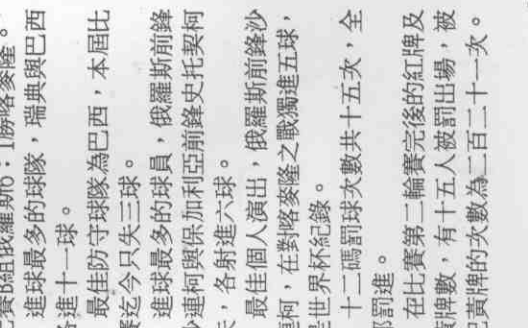 賽B組俄羅斯6：1勝喀麥隆。
進球最多的球隊，瑞典與巴西
各進十一球。
最佳防守球隊為巴西，本屆比
賽迄今只失三球。
進球最多的球員，俄羅斯前鋒
沙連柯與保加利亞前鋒史托契柯
夫，各射進六球。
最佳個人演出，俄羅斯前鋒沙
連柯，在對喀麥隆之戰獨進五球，
是世界杯紀錄。
十二碼罰球次數共十五次，全
部罰進。
在比賽第二輪賽完後的紅牌及
黃牌數，有十五人被罰出場，被
記黃牌的次數為二百二十一次。